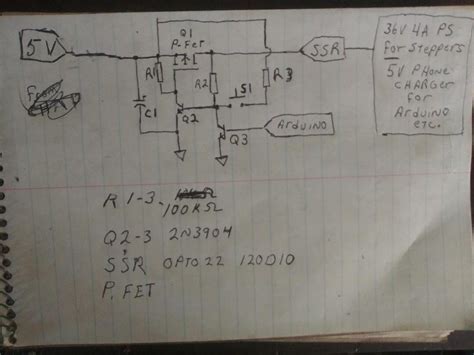 5V
From
Q1
P-FET
R1
R2
S1
R3
C1
Q2
Q3
SSR
Arduino
36V 4A PS
for Steppers
5V Phone
Charger
for
Arduino
etc.
R 1-3 -
100KΩ
Q2-3 2N3904
SSR OPTO22 120D10
P. FET